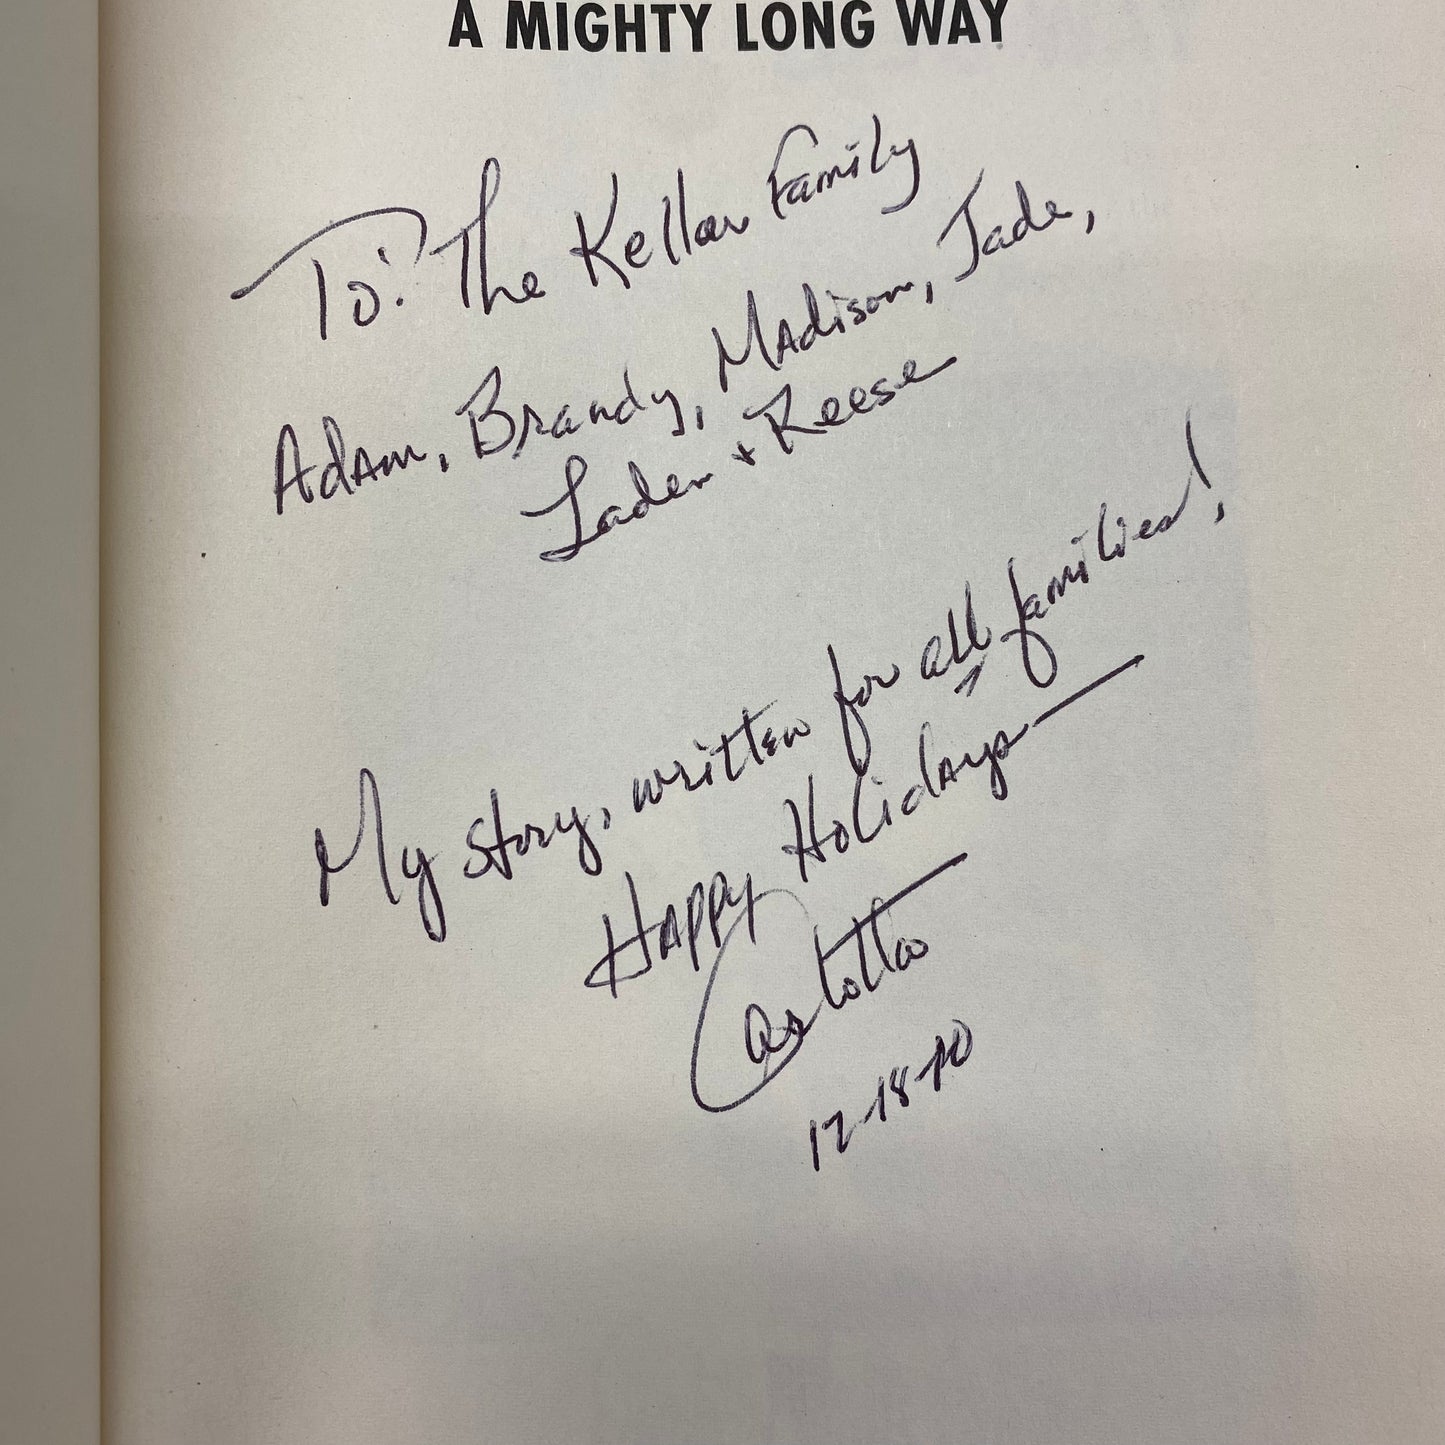 A MIGHTY LONG WAY
To: The Kellar Family
Adam, Brandy, Madison, Jade,
Laden + Reese
My story, written for all families!,
Happy Holidays
Carlotta
12-18-10